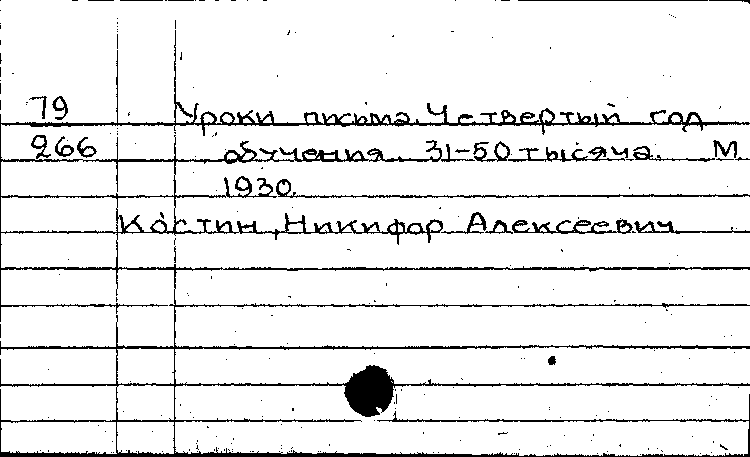 79 Уроки письма. Четвертый год
266 обучения. 31-50 тысяча. М
1930.
Костин, Никифар Алексеевич